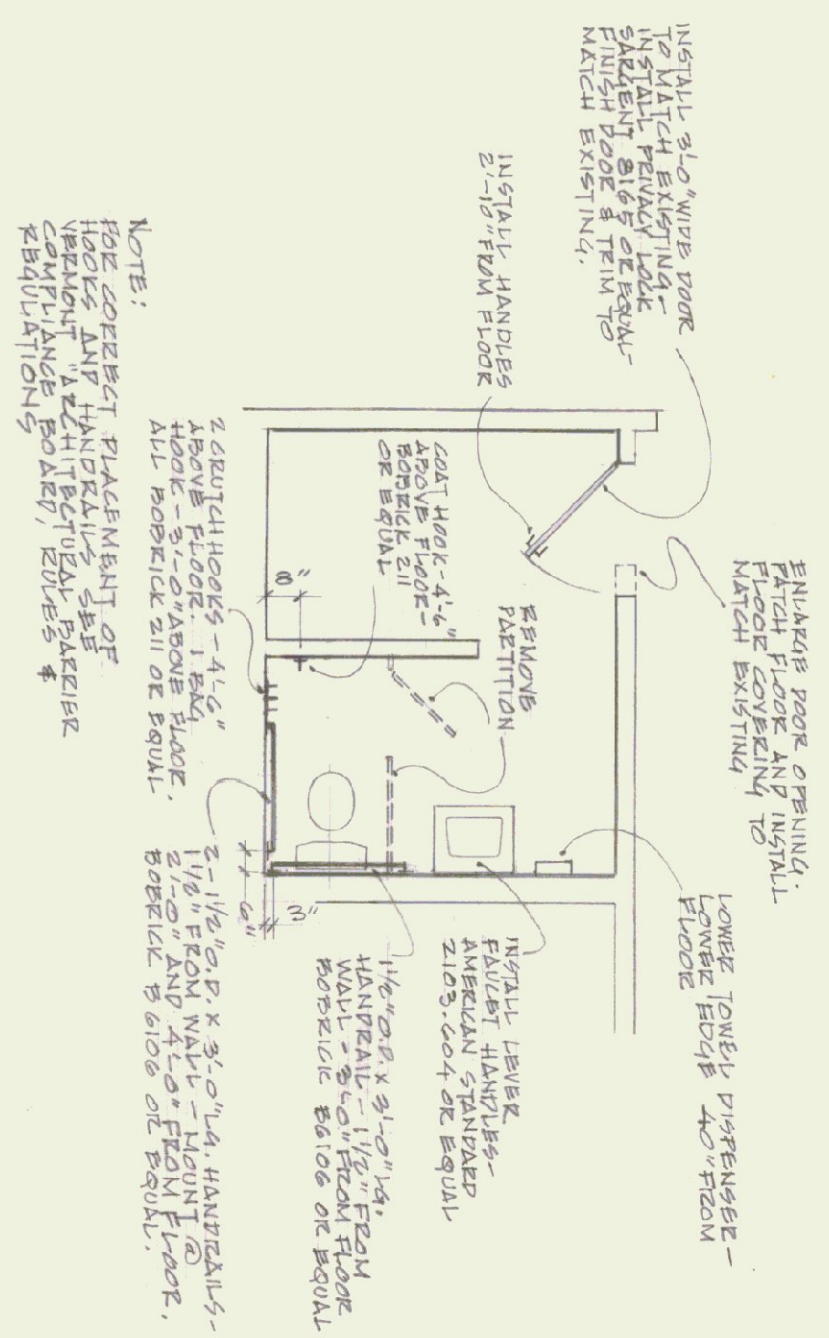 INSTALL 3'-0" WIDE DOOR
TO MATCH EXISTING -
INSTALL PRIVACY LOCK
SARGENT 8165 OR EQUAL -
FINISH DOOR & TRIM TO
MATCH EXISTING.
INSTALL HANDLES
2'-10" FROM FLOOR
ENLARGE DOOR OPENING.
PATCH FLOOR AND INSTALL
FLOOR COVERING TO
MATCH EXISTING
LOWER TOWEL DISPENSER -
LOWER EDGE 40" FROM
FLOOR
COAT HOOK - 4'-6"
ABOVE FLOOR -
BOBRICK 211
OR EQUAL
REMOVE
PARTITION
INSTALL LEVER
FAUCET HANDLES -
AMERICAN STANDARD
2103.604 OR EQUAL
1 1/2" O.D. X 3'-0" LG.
HANDRAIL - 1 1/2" FROM
WALL - 3'-0" FROM FLOOR
BOBRICK B6106 OR EQUAL
8"
3"
6"
2 CRUTCH HOOKS - 4'-6"
ABOVE FLOOR. 1 BAG
HOOK - 3'-0" ABOVE FLOOR.
ALL BOBRICK 211 OR EQUAL
2 - 1 1/2" O.D. X 3'-0" LG. HANDRAILS -
1 1/2" FROM WALL - MOUNT @
2'-0" AND 4'-0" FROM FLOOR.
BOBRICK B6106 OR EQUAL.
NOTE:
FOR CORRECT PLACEMENT OF
HOOKS AND HANDRAILS SEE
VERMONT "ARCHITECTURAL BARRIER
COMPLIANCE BOARD, RULES &
REGULATIONS